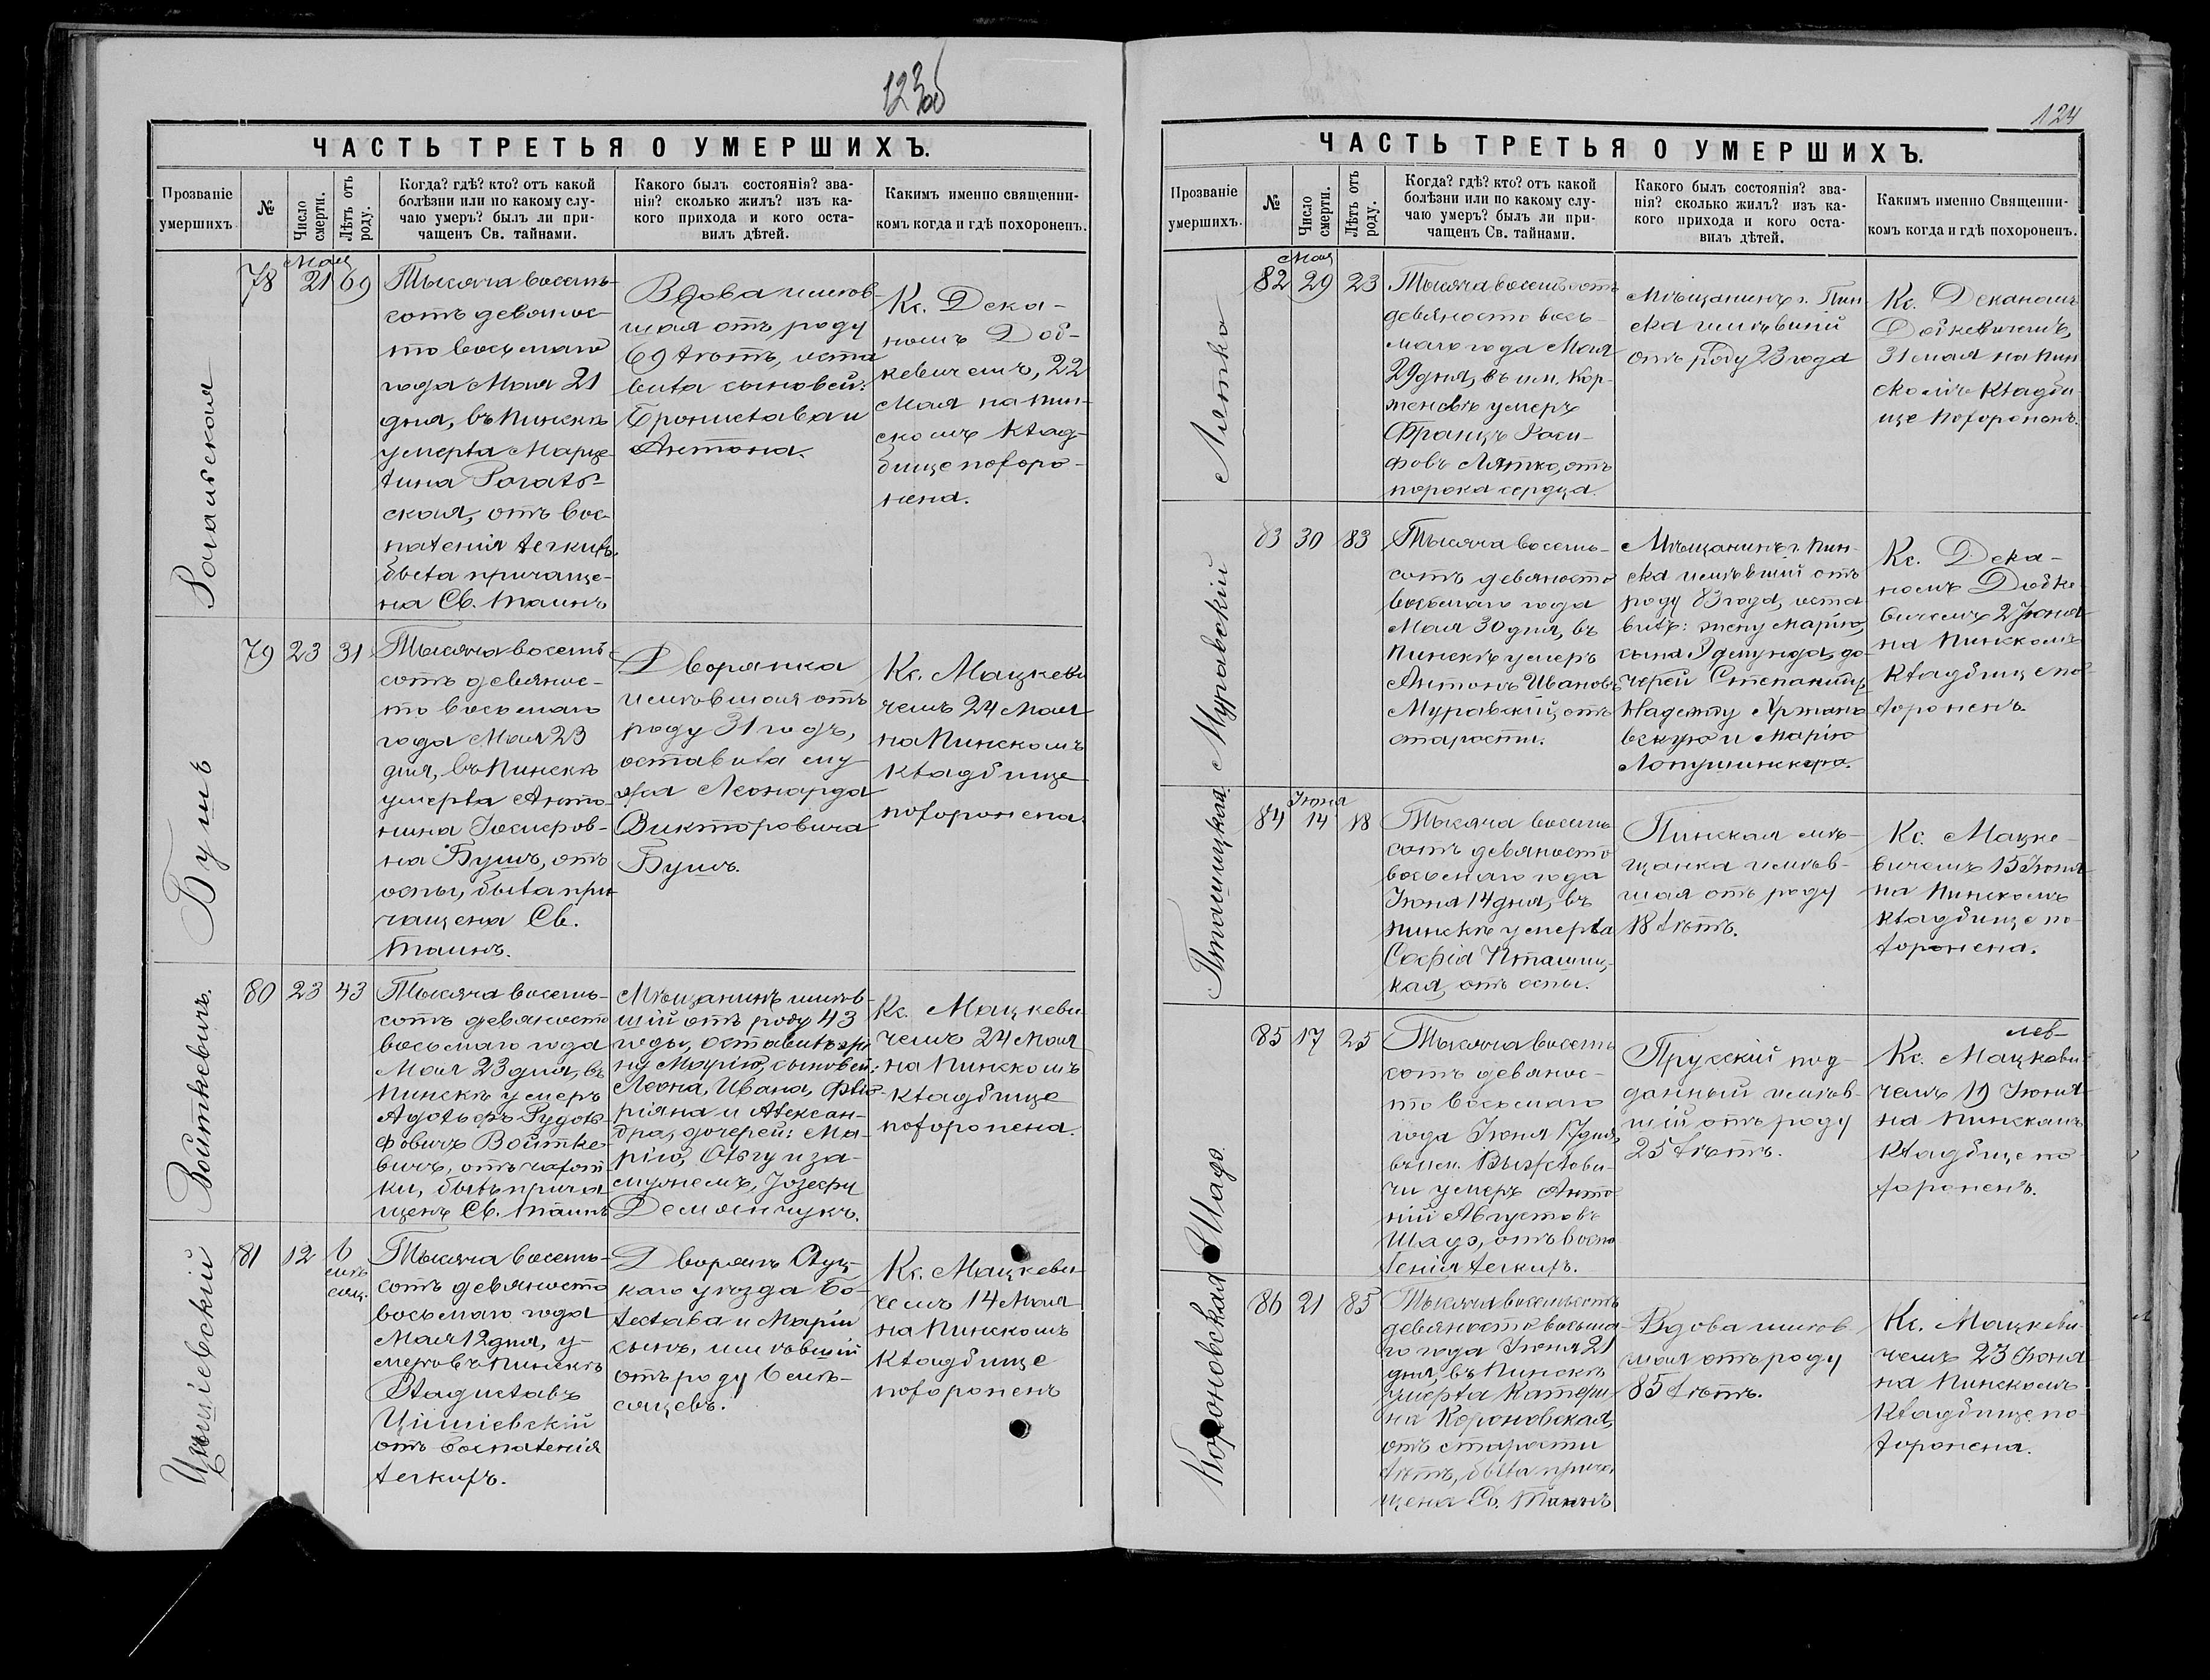 123об
ЧАСТЬ ТРЕТЬЯ О УМЕРШИХЪ.
Прозваніе
умершихъ
№
Число
смерти.
Лѣтъ отъ
роду.
Когда? гдѣ? кто? отъ какой
болѣзни или по какому слу-
чаю умеръ? былъ ли при-
чащенъ Св. тайнами.
Какого былъ состоянія? зва-
нія? сколько жилъ? изъ ка-
кого прихода и кого оста-
вилъ дѣтей.
Какимъ именно священни-
комъ когда и гдѣ похороненъ.
Рогальская
78
Мая
21
69
Тысяча восемь-
сотъ девянос-
то восьмаго
года Мая 21
дня, въ Пинскѣ
умерла Марце-
лина Рогаль-
ская, отъ вос-
паленія легкихъ.
была причаще-
на Св. Таинъ
Вдова имѣв-
шая отъ роду
69 лѣтъ, оста
вила сыновей:
Бронислава и
Антона.
Кс. Дека-
номъ Доб-
кевичемъ, 22
Мая на Пин-
скомъ клад-
бище похоро-
нена.
Бушъ
79
23
31
Тысяча восемь-
сотъ девянос-
то восьмаго
года Мая 23
дня, въ Пинскѣ
умерла Анто-
нина Іосифов-
на Бушъ, отъ
оспы, была при
чащена Св.
Таинъ.
Дворянка
имѣвшая отъ
роду 31 годъ,
оставила му-
жа Леонарда
Викторовича
Бушъ.
Кс. Мацкеви
чемъ 24 Мая
на Пинскомъ
кладбище
похоронена.
Войткевичъ.
80
23
43
Тысяча восемь-
сотъ девяносто
восьмаго года
Мая 23 дня, въ
Пинскѣ умеръ
Адольфъ Рудоль-
фовичъ Войтке-
вичъ, отъ чахот
ки, былъ прича
щенъ Св. Таинъ
Мѣщанинъ имѣв-
шій отъ роду 43
годы, оставилъ же
ну Марію, сыновей:
Леона, Ивана, Фло-
ріяна и Алексан-
дра, дочерей: Ма-
рію, Ольгу и за-
мужемъ, Іозефу
Демьянчукъ.
Кс. Мацкеви
чемъ 24 Мая
на Пинскомъ
кладбище
похоронена.
81
12
6
мѣ
сяц.
Тысяча восемь-
сотъ девяносто
восьмаго года
Мая 12 дня, у-
меръ въ Пинскѣ
Владиславъ
отъ воспаленія
легкихъ.
Дворянъ Слуц-
каго уѣзда Бо-
леслава и Маріи
сынъ, имѣвшій
отъ роду 6 мѣ-
сяцевъ.
Кс. Мацкеви
чемъ 14 Мая
на Пинскомъ
кладбище
похороненъ
124
ЧАСТЬ ТРЕТЬЯ О УМЕРШИХЪ.
Прозваніе
умершихъ.
№
Число
смерти.
Лѣтъ отъ
роду.
Когда? гдѣ? кто? отъ какой
болѣзни или по какому слу-
чаю умеръ? былъ ли при-
чащенъ Св. тайнами.
Какого былъ состоянія? зва-
нія? сколько жилъ? изъ ка-
кого прихода и кого оста-
вилъ дѣтей.
Какимъ именно Священни-
комъ когда и гдѣ похороненъ.
Лятко
82
Мая
29
23
Тысяча восемьсотъ
девяносто вось-
маго года Мая
29 дня, въ им. Кор-
женевѣ умеръ
Францъ Іоси-
фовъ Лятко, отъ
порока сердца.
Мѣщанинъ г. Пин
ска имѣвшій
отъ роду 23 года
Кс. Деканомъ
Добкевичемъ,
31 мая на Пин
скомъ кладби
ще похороненъ.
Муравскій
83
30
83
Тысяча восемь-
сотъ девяносто
восьмаго года
Мая 30 дня, въ
Пинскѣ умеръ
Антонъ Ивановъ
Муравскій, отъ
старости.
Мѣщанинъ г. Пин-
ска имѣвшій отъ
роду 83 года, оста
вилъ: жену Марію,
сына Эдмунда, до-
черей Степаниду,
Надежду Аржано
вскую и Марію
Кс. Дека-
номъ Добке
вичемъ 2 Іюня
на Пинскомъ
кладбище по-
хороненъ.
Пташицкая.
84
Іюня
14
18
Тысяча восемь
сотъ девяносто
восьмаго года
Іюня 14 дня, въ
Пинскѣ умерла
Софія Пташиц-
кая, отъ оспы.
Пинская мѣ-
щанка имѣв-
шая отъ роду
18 лѣтъ.
Кс. Мацке-
вичемъ 15 Іюня
на Пинскомъ
кладбище по-
хоронена.
Шадэ
85
17
25
Тысяча восемь
сотъ девянос-
то восьмаго
года Іюня 17 дня,
въ им.
чи умеръ Анто
ній Августовъ
Шадэ, отъ воспа
ленія легкихъ.
Прусскій под-
данный имѣв-
шій отъ роду
25 лѣтъ.
Кс. Мацкеви-
чемъ 19 Іюня
на Пинскомъ
кладбище по-
хороненъ.
Короновская
86
21
85
Тысяча восемьсотъ
девяносто восьма-
го года Іюня 21
дня, въ Пинскѣ
умерла Катери-
на Короновская,
отъ старости
лѣтъ, была прича
щена Св. Таинъ
Вдова имѣв-
шая отъ роду
85 лѣтъ.
Кс. Мацкеви-
чемъ 23 Іюня
на Пинскомъ
кладбище по-
хоронена.